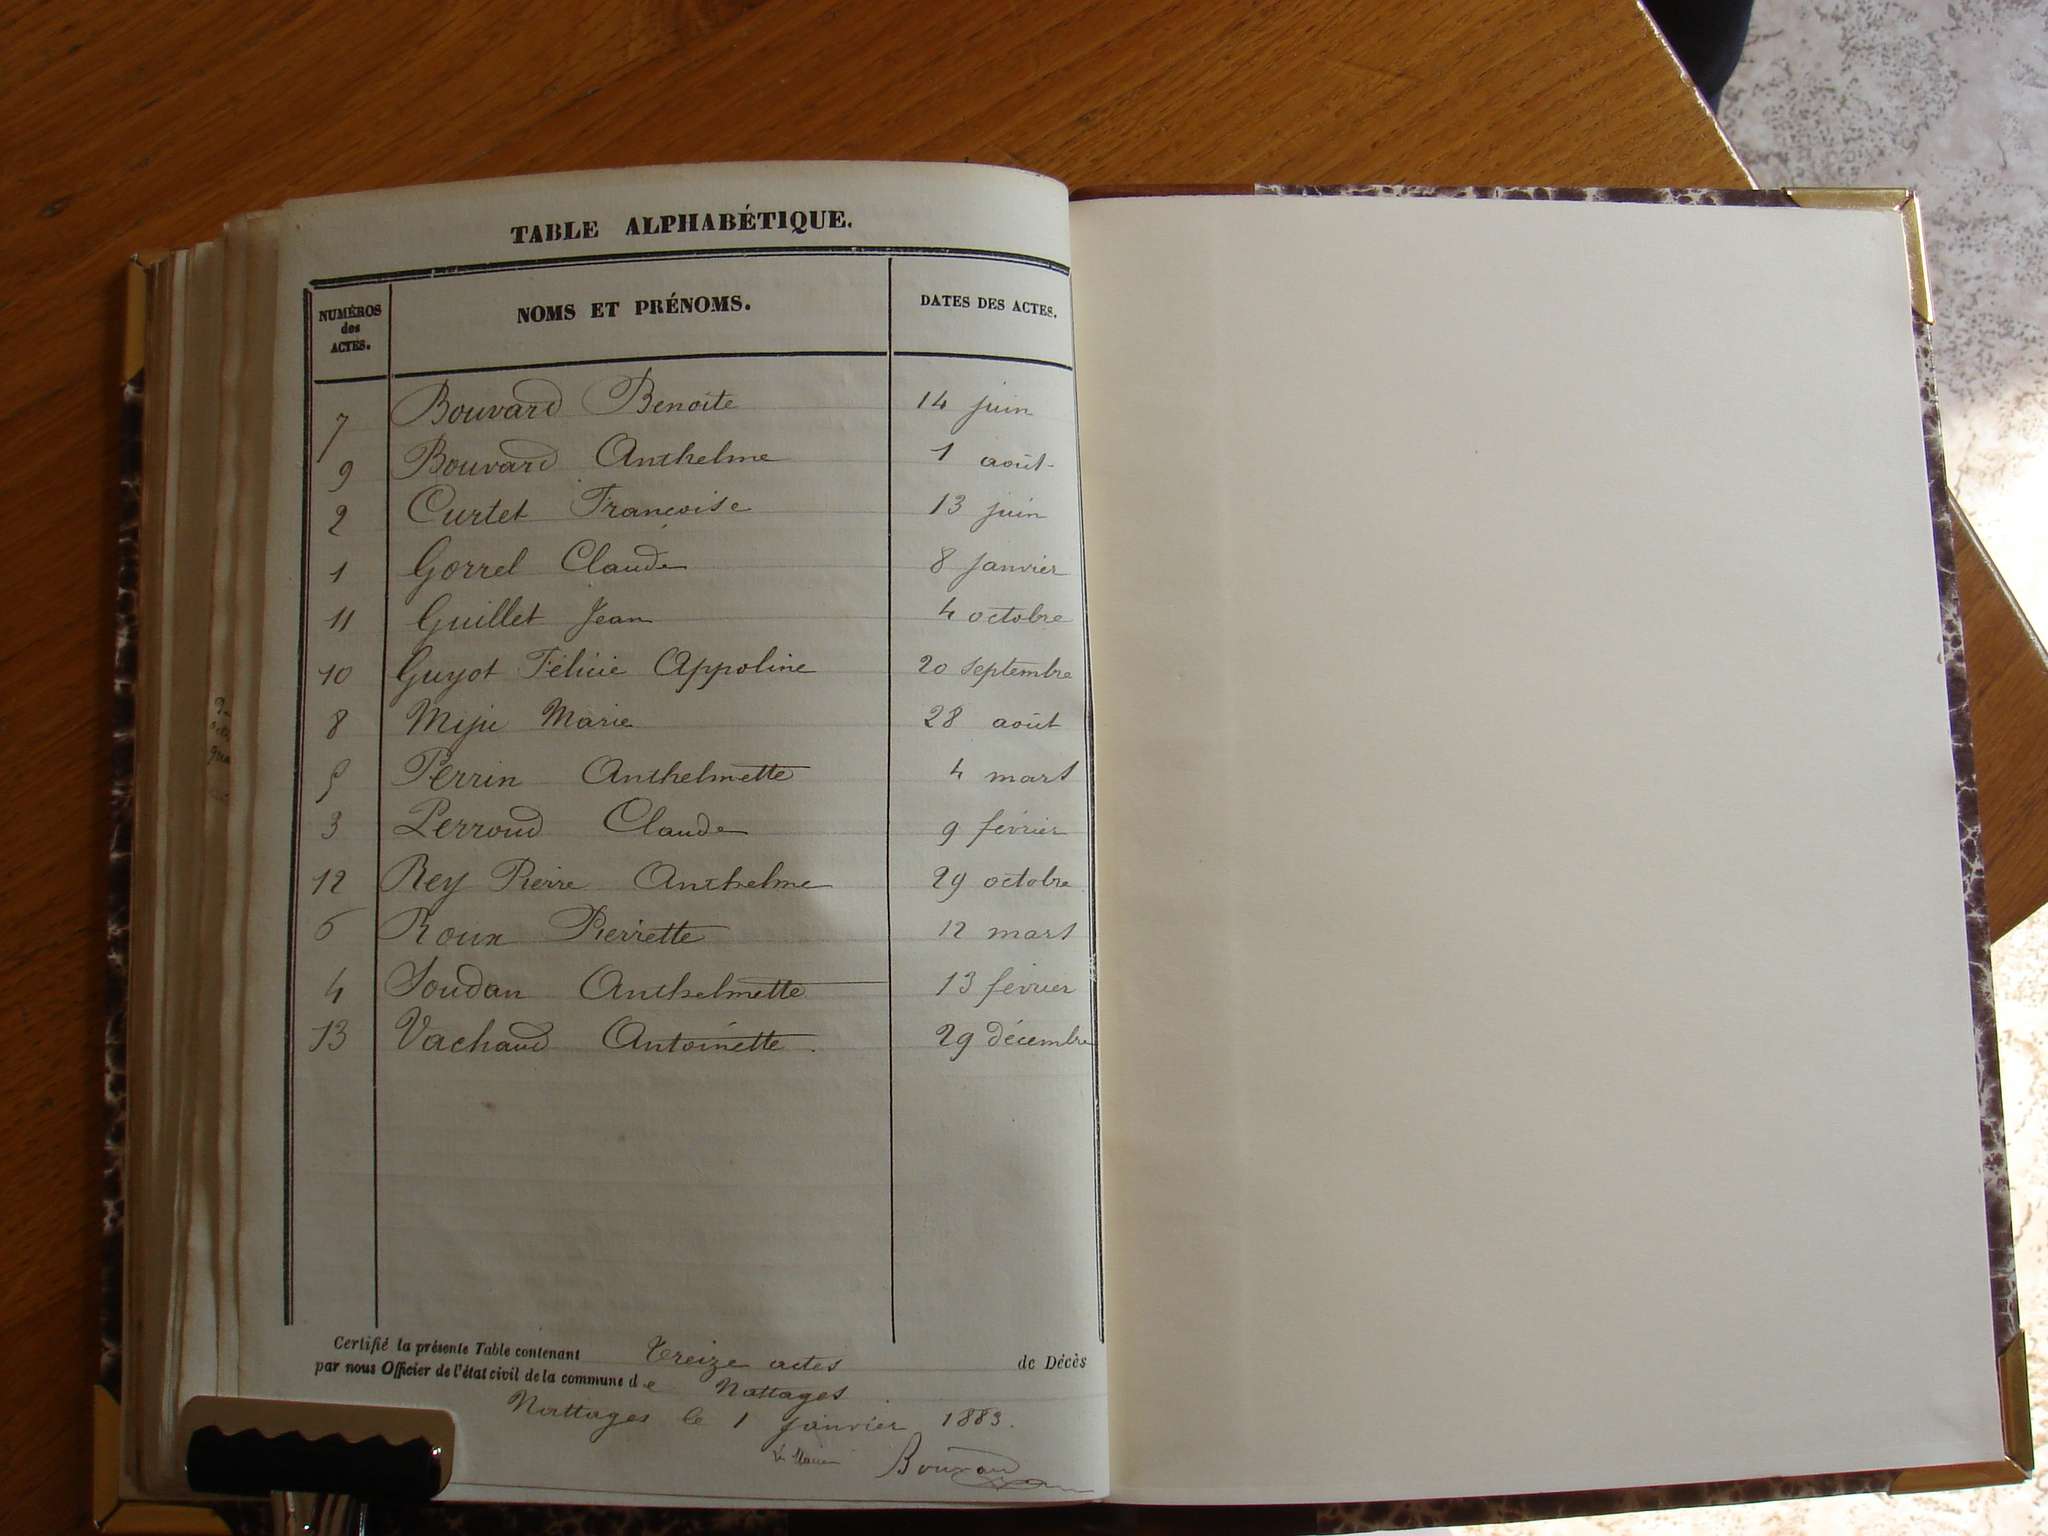 TABLE ALPHABÉTIQUE.
NUMÉROS des ACTES. NOMS ET PRÉNOMS. DATES DES ACTES.
7 Bouvard Benoite 14 juin
9 Bouvard Anthelme 1 août
2 Curtet Françoise 13 juin
1 Gorrel Claude 8 janvier
11 Guillet Jean 4 octobre
10 Guyot Félicie Appoline 20 septembre
8 Marie 28 août
5 Perrin Anthelmette 4 mars
3 Perroud Claude 9 février
12 Rey Pierre Anthelme 29 octobre
6 Roux Pierrette 12 mars
4 Soudan Anthelmette 13 février
13 Vachaud Antoinette 29 décembre
Certifié la présente Table contenant Treize actes de Décès
par nous Officier de l'état civil de la commune de Nattages
Nattages le 1 janvier 1883.
Le Maire Bouvard